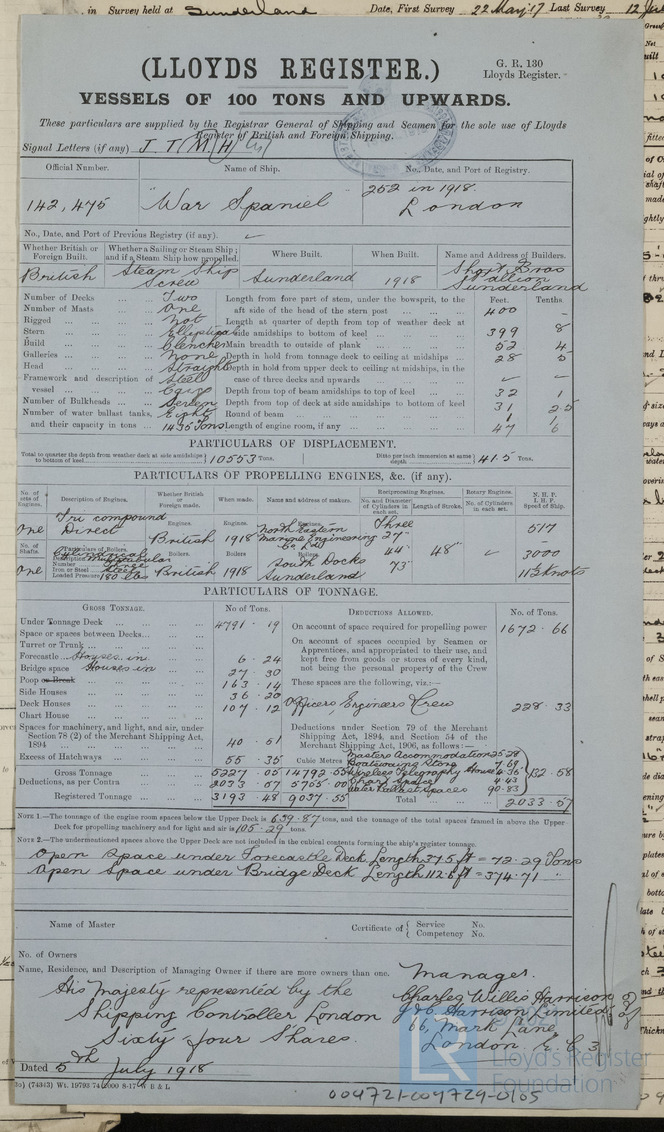 in Survey held at Sunderland Date, First Survey 22 May 17 Last Survey 12
(LLOYDS REGISTER.)
G. R. 130
Lloyds Register.
VESSELS OF 100 TONS AND UPWARDS.
These particulars are supplied by the Registrar General of Shipping and Seamen for the sole use of Lloyds
Register of British and Foreign Shipping.
Signal Letters (if any) J T M H
Official Number. Name of Ship. No., Date, and Port of Registry.
142,475 "War Spaniel" 252 in 1918. London
No., Date, and Port of Previous Registry (if any).
Whether British or Foreign Built. Whether a Sailing or Steam Ship; and if a Steam Ship how propelled. Where Built. When Built. Name and Address of Builders.
British Steam Ship Screw Sunderland 1918 Short Bros Pallion Sunderland
Feet. Tenths.
Number of Decks Two Length from fore part of stem, under the bowsprit, to the
Number of Masts One aft side of the head of the stern post 400 -
Rigged Not Length at quarter of depth from top of weather deck at
Stern Elliptical side amidships to bottom of keel 399 8
Build Clencher Main breadth to outside of plank 52 4
Galleries None Depth in hold from tonnage deck to ceiling at midships 28 5
Head Straight Depth in hold from upper deck to ceiling at midships, in the
Framework and description of vessel Steel case of three decks and upwards
Depth from top of beam amidships to top of keel 32 1
Number of Bulkheads Seven Depth from top of deck at side amidships to bottom of keel 31 25
Number of water ballast tanks, Eight Round of beam 1 1
and their capacity in tons 1436 Tons Length of engine room, if any 47 6
PARTICULARS OF DISPLACEMENT.
Total to quarter the depth from weather deck at side amidships to bottom of keel 10553 Tons. Ditto per inch immersion at same depth 41.5 Tons.
PARTICULARS OF PROPELLING ENGINES, &c. (if any).
No. of sets of Engines. Description of Engines. Whether British or Foreign made. When made. Name and address of makers. Reciprocating Engines. Rotary Engines. N. H. P.
No. and Diameter of Cylinders in each set. Length of Stroke. No. of Cylinders in each set. I. H. P. Speed of Ship.
One Tri compound Direct Engines. British Engines. 1918 Engines. North Eastern Marine Engineering Co Ltd Three 27" 517
No. of Shafts. Particulars of Boilers. Boilers. Boilers Boilers 44" 48" 3000
Description Cylindrical
Number Three
Iron or Steel Steel
One Loaded Pressure 180 lbs British 1918 South Docks Sunderland 73" 11½ Knots
PARTICULARS OF TONNAGE.
GROSS TONNAGE. No of Tons. DEDUCTIONS ALLOWED. No. of Tons.
Under Tonnage Deck 4791 . 19 On account of space required for propelling power 1672 . 66
Space or spaces between Decks On account of spaces occupied by Seamen or
Turret or Trunk Apprentices, and appropriated to their use, and
Forecastle Houses in 6 . 24 kept free from goods or stores of every kind,
Bridge space Houses in 27 . 30 not being the personal property of the Crew
Poop or Break 163 . 14 These spaces are the following, viz.:—
Side Houses 36 . 20
Deck Houses 107 . 12 Officers Engineers Crew 228 . 33
Chart House
Spaces for machinery, and light, and air, under Deductions under Section 79 of the Merchant
Section 78 (2) of the Merchant Shipping Act, Shipping Act, 1894, and Section 54 of the
1894 40 . 51 Merchant Shipping Act, 1906, as follows:—
Excess of Hatchways 55 . 35 Cubic Metres Masters Accommodation 25.28
Boatswains Store 7.69
Gross Tonnage 5227 . 05 14792.55 Wireless Telegraphy House 4.35 132 . 58
Deductions, as per Contra 2033 . 57 5755.00 Chart Space 4.43
Registered Tonnage 3193 . 48 9037.55 Water Ballast Spaces 90.83
Total 2033 . 57
NOTE 1.—The tonnage of the engine room spaces below the Upper Deck is 639.87 tons, and the tonnage of the total spaces framed in above the Upper
Deck for propelling machinery and for light and air is 105.29 tons.
NOTE 2.—The undermentioned spaces above the Upper Deck are not included in the cubical contents forming the ship's register tonnage.
Open Space under Forecastle Deck Length 37.5 ft = 72.29 Tons
Open Space under Bridge Deck Length 112.6 ft = 374.71 "
Name of Master Certificate of Service No.
Competency No.
No. of Owners
Name, Residence, and Description of Managing Owner if there are more owners than one.
His Majesty represented by the
Shipping Controller London
Sixty four Shares.
Manager.
Charles Willis Harrison
J & C Harrison Limited
66, Mark Lane
London. E.C.3
Dated 5th July 1918
(74343) Wt. 19793/74 2000 8-17 W B & L
LR Lloyd's Register
Foundation
004721-004729-0105